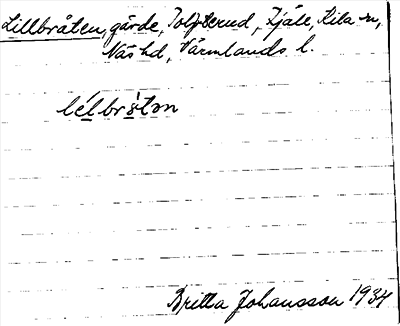 Lillbråten, gärde, Tolfterud, Kjäle, Kila sn,
Näs hd, Värmlands l.
lélbròtən
Britta Johansson 1934